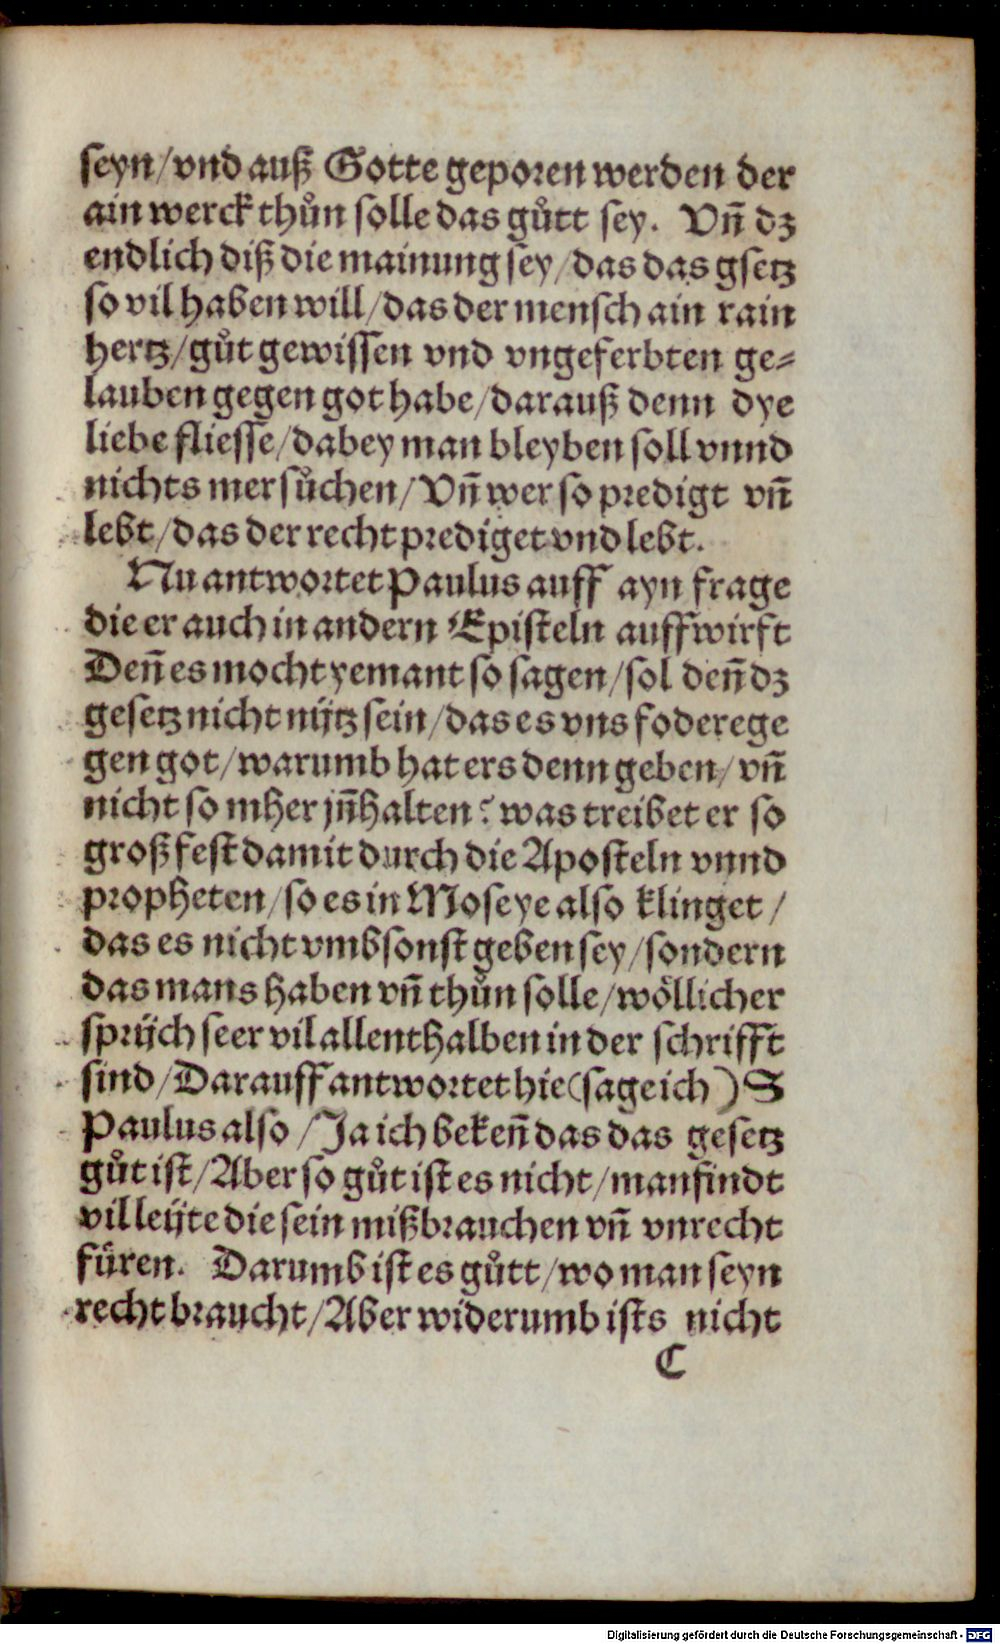 seyn/vnd auß Gotte geporen werden der
ain werck thůn solle das gůtt sey. Vn̄ dz
endlich diß die mainung sey/das das gsetz
so vil haben will/das der mensch ain rain
hertz/gůt gewissen vnd vngeferbten ge⸗
lauben gegen got habe/darauß denn dye
liebe fliesse/dabey man bleyben soll vnnd
nichts mer sůchen/Vn̄ wer so predigt vn̄
lebt/das der recht prediget vnd lebt.
Nu antwortet Paulus auff ayn frage
die er auch in andern Episteln auffwirft
Den̄ es mocht yemant so sagen/sol den̄ dz
gesetz nicht nijtz sein/das es vns fodere ge
gen got/warumb hat ers denn geben/vn̄
nicht so mher jn̄halten? was treibet er so
groß fest damit durch die Aposteln vnnd
propheten/so es in Moseye also klinget/
das es nicht vmbsonst geben sey/sondern
das mans haben vn̄ thůn solle/wöllicher
sprijch seer vil allenthalben in der schrifft
sind/Darauff antwortet hie(sage ich)S
Paulus also/Ja ich beken̄ das das gesetz
gůt ist/Aber so gůt ist es nicht/man findt
vil leijte die sein mißbrauchen vn̄ vnrecht
füren. Darumb ist es gůtt/wo man seyn
recht braucht/Aber widerumb ists nicht
C
Digitalisierung gefördert durch die Deutsche Forschungsgemeinschaft - DFG